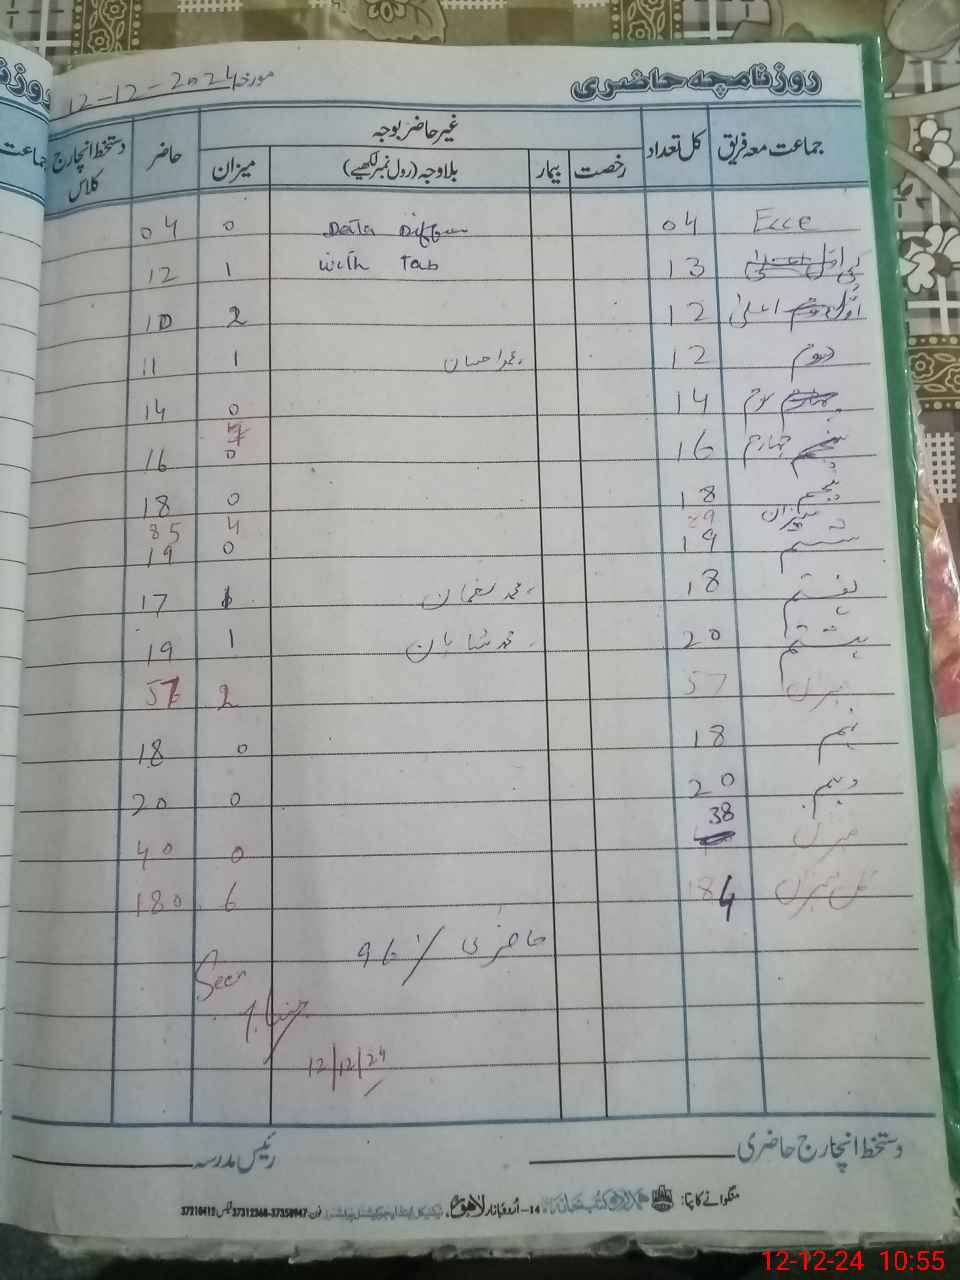 روزنامچہ حاضری مورخہ 12-12-2024
جماعت معہ فریق کل تعداد غیر حاضر بوجہ حاضر دستخط انچارج کلاس
رخصت بیمار بلاوجہ (رول نمبر لکھیے) میزان
Ecce 04 Data 0 04
13 with Tab 1 12
12 2 10
دوم 12 1 11
سوم 14 0 14
چہارم 16 0 16
پنجم 18 0 18
میزان 4 85
ششم 19 0 19
ہفتم 18 محمد لقمان 1 17
ہشتم 20 محمد شایان 1 19
میزان 57 2
نہم 18 0 18
دہم 20 0 20
میزان 38 0 40
کل میزان 184 6 180
حاضری % 96
Seen
12/12/24
دستخط انچارج حاضری رئیس مدرسہ
منگوانے کا پتا: 14-اردو بازار لاہور فون: 37312368-37350947 فیکس 37210412
12-12-24 10:55